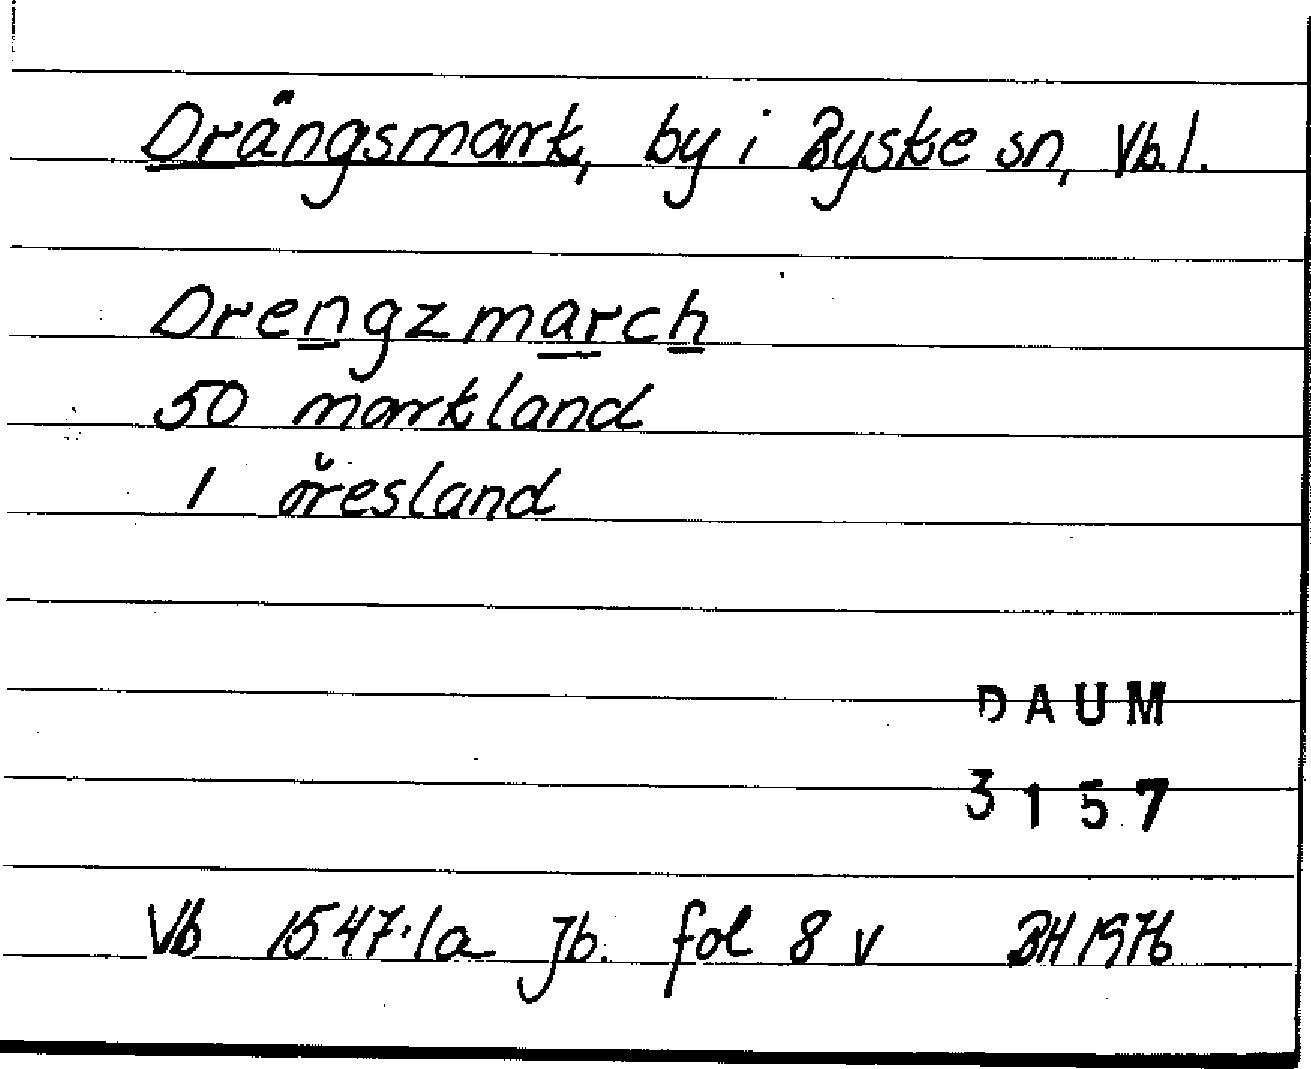 Drängsmark, by i Byske sn, Vb. l.
Drengzmarch
50 markland
1 öresland
DAUM
3157
Vb 1547:1a Jb. fol 8 v BH 1976